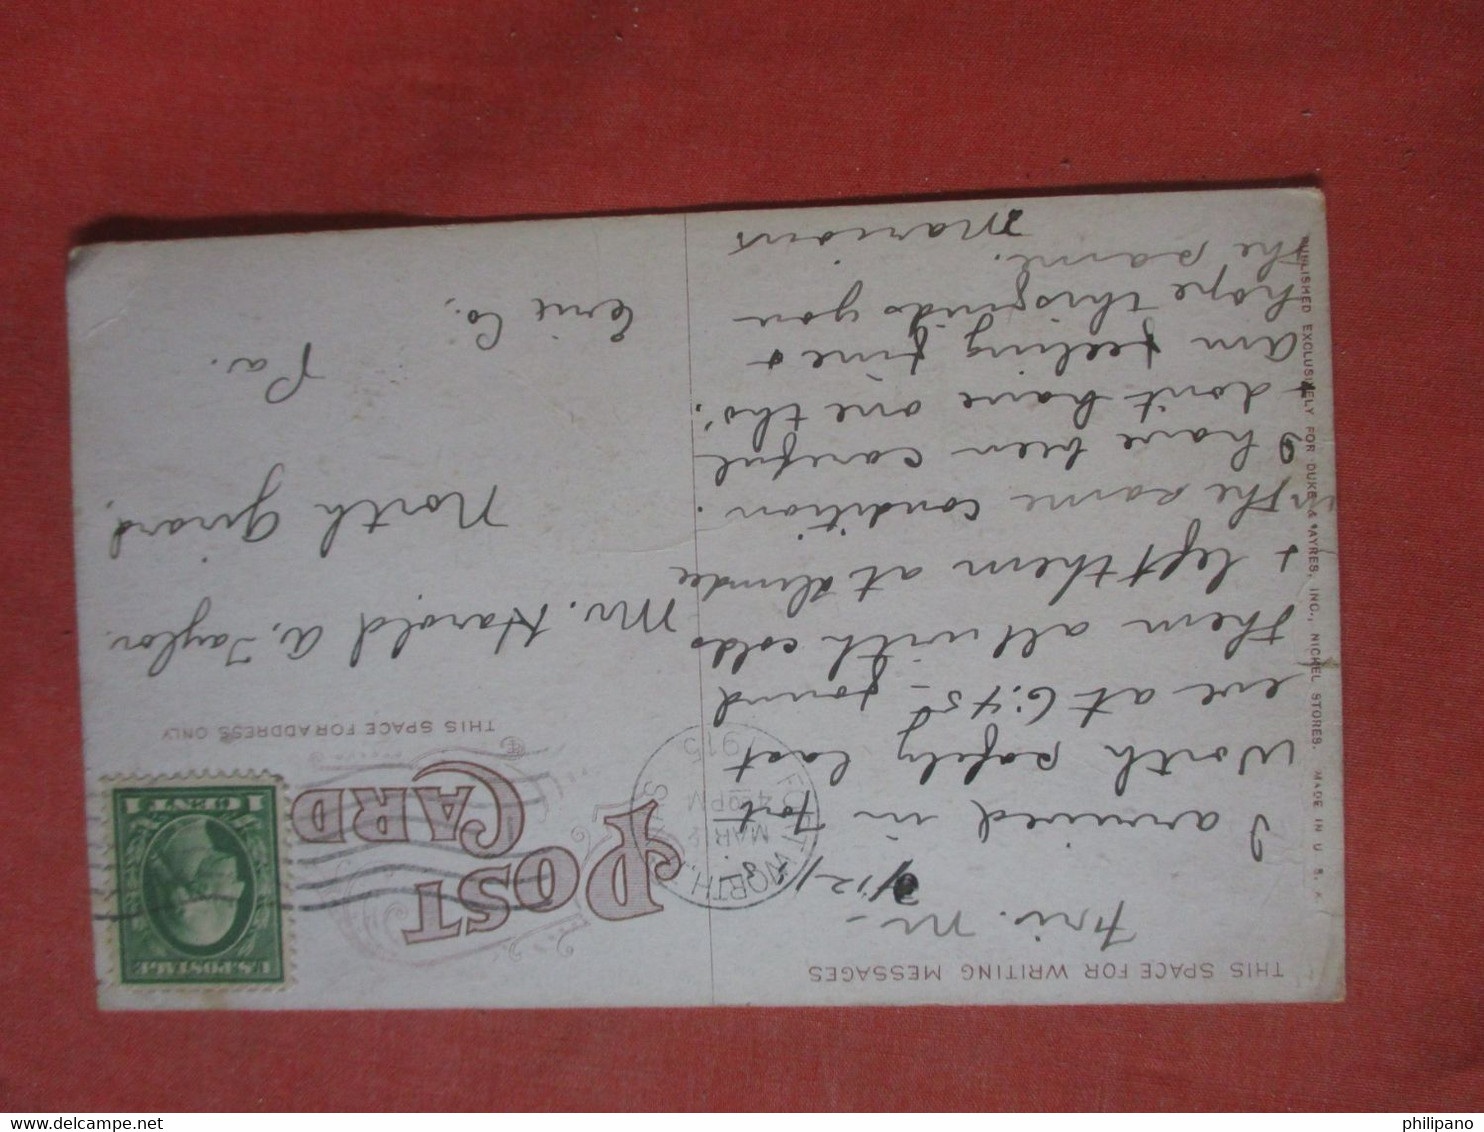 THIS SPACE FOR WRITING MESSAGES
Fri. M- 3/12/15.
I arrived in Fort
Worth safely last
eve at 6:45 - found
them all with colds
+ left them at
in the same condition.
I have been careful
+ don't have one tho'.
Am feeling fine +
hope this finds you
the same.
Marions
POST
CARD
THIS SPACE FOR ADDRESS ONLY
U.S. POSTAGE
1 CENT 1
FORT WORTH,
MAR 12
4 PM
1915
Mr. Harold A. Taylor
North Girard,
Erie Co.
Pa.
PUBLISHED EXCLUSIVELY FOR DUKE & AYRES, INC., NICKEL STORES. MADE IN U. S. A.
philipano